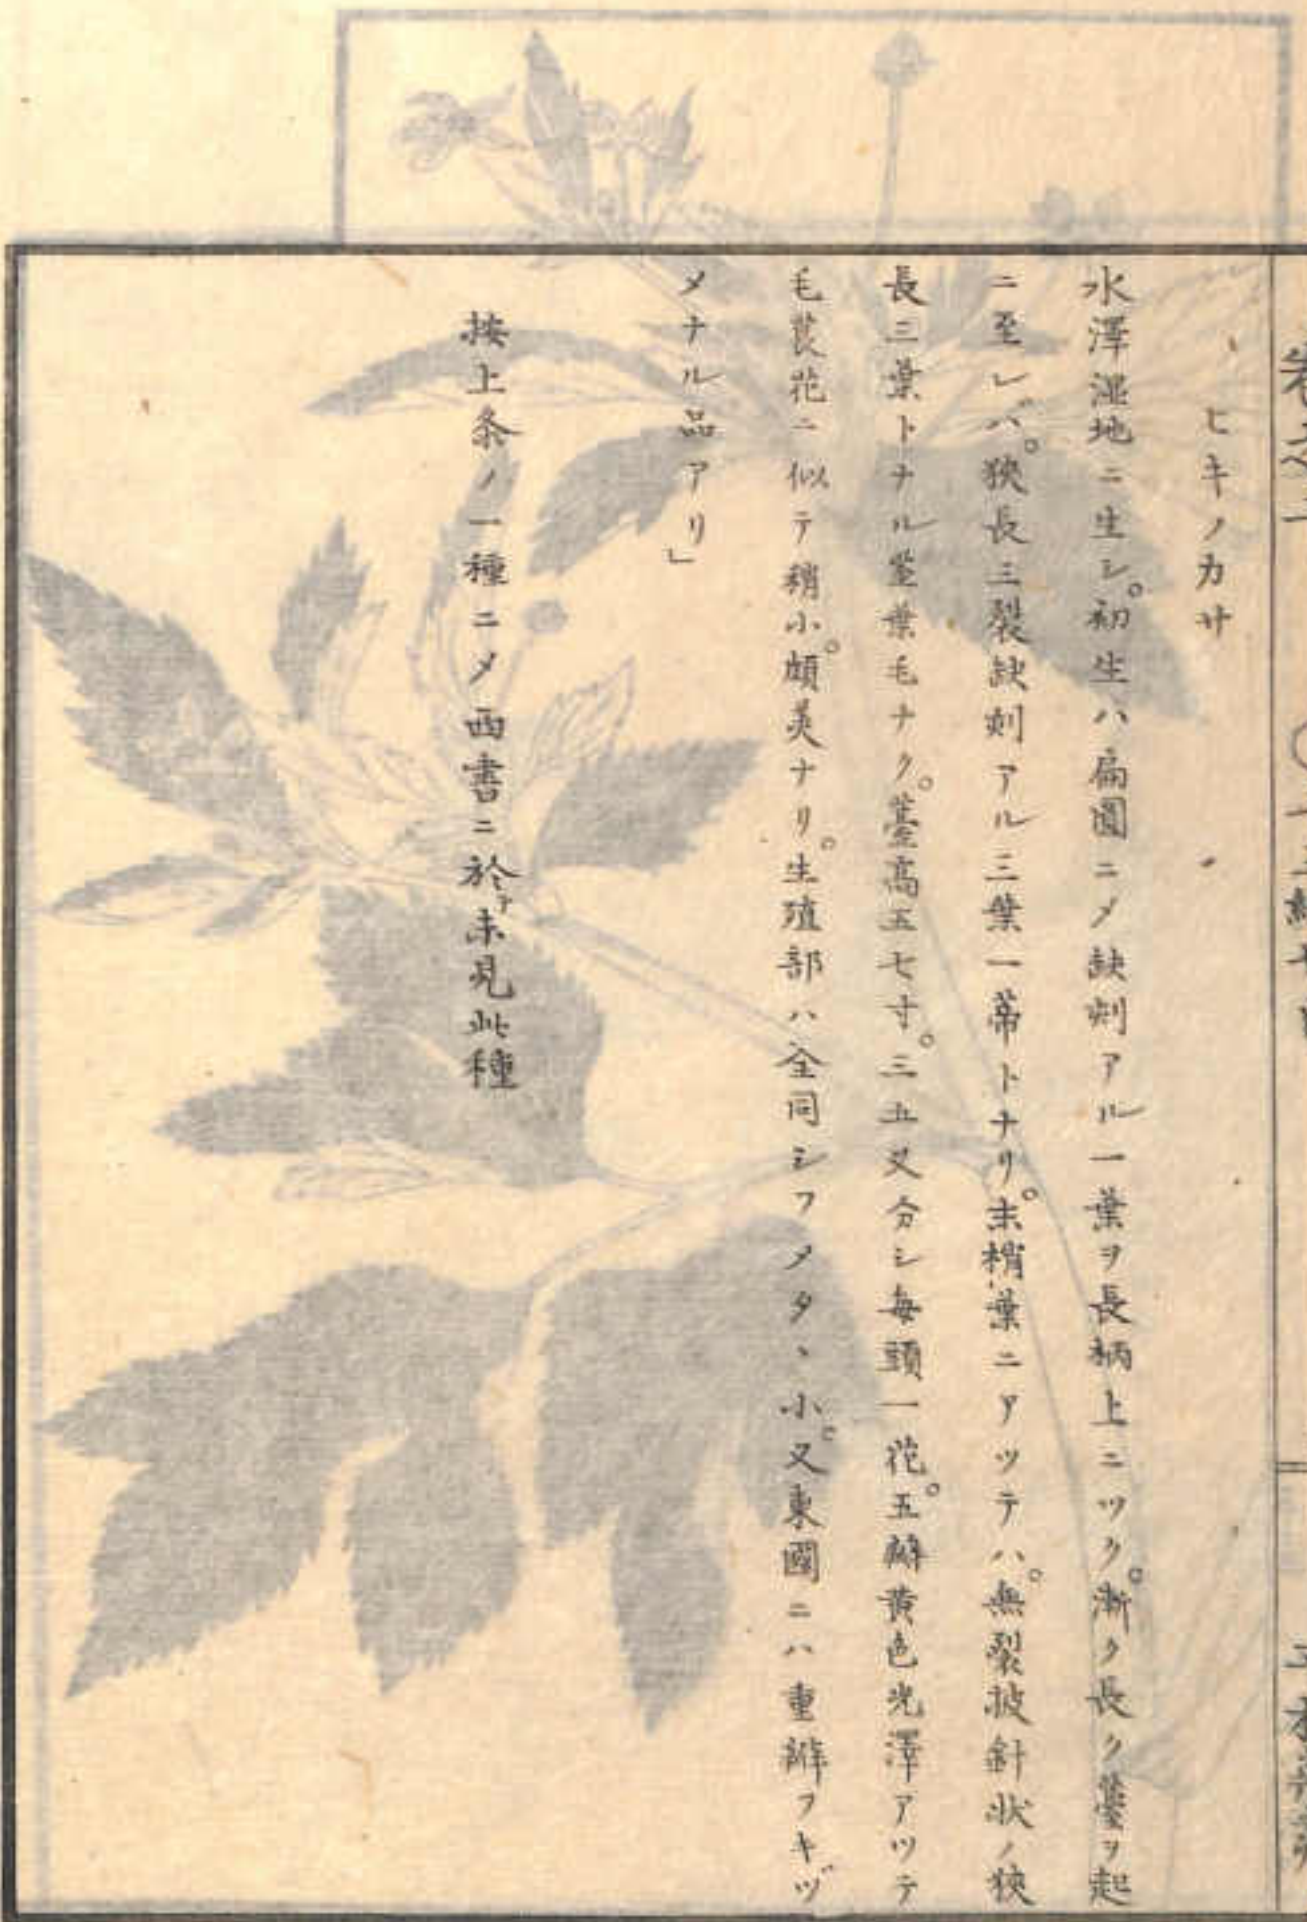 ヒキノカサ
水澤湿地ニ生シ。初生ハ扁圓ニ〆缺刻アル一葉ヲ長柄上ニツク。漸ク長ク薹ヲ起
ニ至レバ。狹長三裂缺刻アル三葉一蒂トナリ。末梢葉ニアツテハ。無裂披針状ノ狹
長三葉トナル莖葉毛ナク。薹高五七寸。三五叉分シ毎頭一花。五瓣黄色光澤アツテ
毛莨花ニ似テ稍小。頗美ナリ。生殖部ハ全同シフメタヽ小。又東國ニハ重瓣フキヅ
メナル品アリ」
按上条ノ一種ニ〆西書ニ於テ未見此種